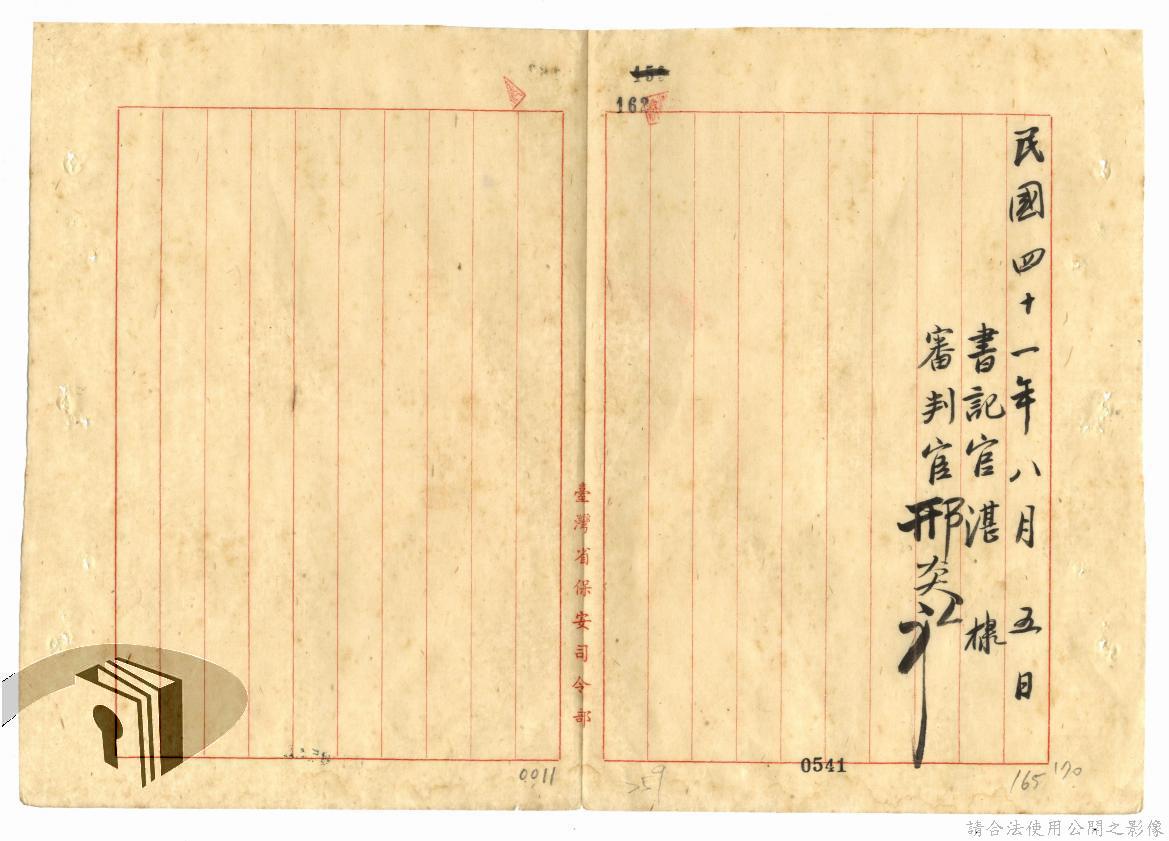 163
民國四十一年八月五日
書記官湛棣
審判官邢炎初
0541
165
170
259
臺灣省保安司令部
0011
請合法使用公開之影像